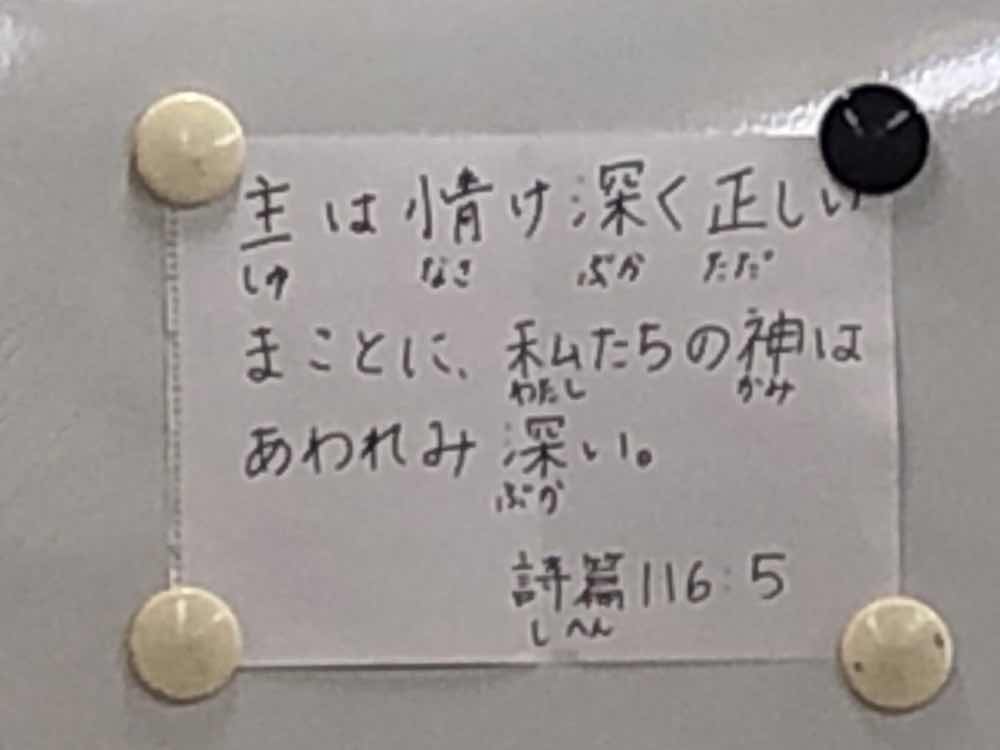 主は情け深く正しい
しゅ なさ ぶか ただ
まことに、私たちの神は
わたし かみ
あわれみ深い。
ぶか
詩篇116:5
しへん